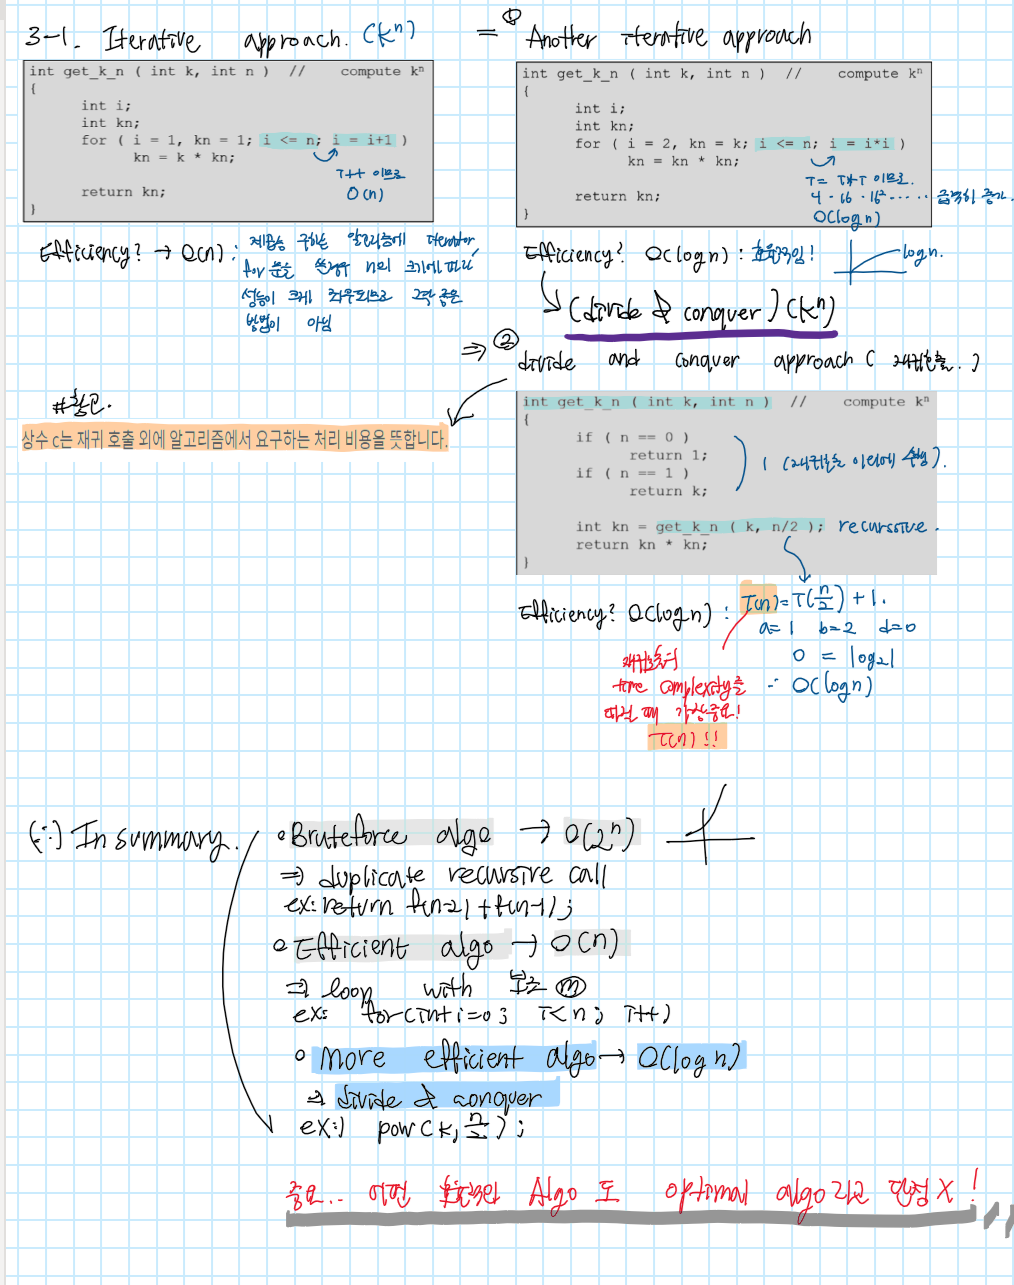 3-1. Iterative approach. (kⁿ)
int get_k_n ( int k, int n ) // compute kⁿ
{
int i;
int kn;
for ( i = 1, kn = 1; i <= n; i = i+1 )
kn = k * kn;
i++ 이므로
O(n)
return kn;
}
Efficiency? → O(n) : 제곱승 구하는 알고리즘에 iterator,
for 문을 쓴경우 n의 크기에 따라
성능이 크게 좌우되므로 그닥 좋은
방법이 아님
= ① Another iterative approach
int get_k_n ( int k, int n ) // compute kⁿ
{
int i;
int kn;
for ( i = 2, kn = k; i <= n; i = i*i )
kn = kn * kn;
i = i*i 이므로.
4 · 16 · 16² ······ 급격히 증가.
return kn;
O(logn)
}
Efficiency? O(logn) : 효율적임! logn.
(divide & conquer) (kⁿ)
⇒ ② divide and conquer approach ( 재귀호출. )
#참고.
상수 c는 재귀 호출 외에 알고리즘에서 요구하는 처리 비용을 뜻합니다.
int get_k_n ( int k, int n ) // compute kⁿ
{
if ( n == 0 )
return 1;
if ( n == 1 )
return k;
1 (재귀호출 이외에 수행).
int kn = get_k_n ( k, n/2 ); recurssive.
return kn * kn;
}
Efficiency? O(logn) : T(n) = T(n/2) + 1.
a=1 b=2 d=0
0 = log₂1
∴ O(logn)
재귀호출의
time complexity를
따질 때 가장중요!
T(n) !!
(∵) In summary.
∘ Bruteforce algo → O(2ⁿ)
⇒ duplicate recursive call
ex: return f(n-2) + f(n-1);
∘ Efficient algo → O(n)
⇒ loop with 보조 ⓜ
ex: for(int i=0; i<n; i++)
∘ more efficient algo → O(log n)
⇒ divide & conquer
ex:) pow(k, n/2);
중요.. 어떤 효율적인 Algo 도 optimal algo라고 단정 X !